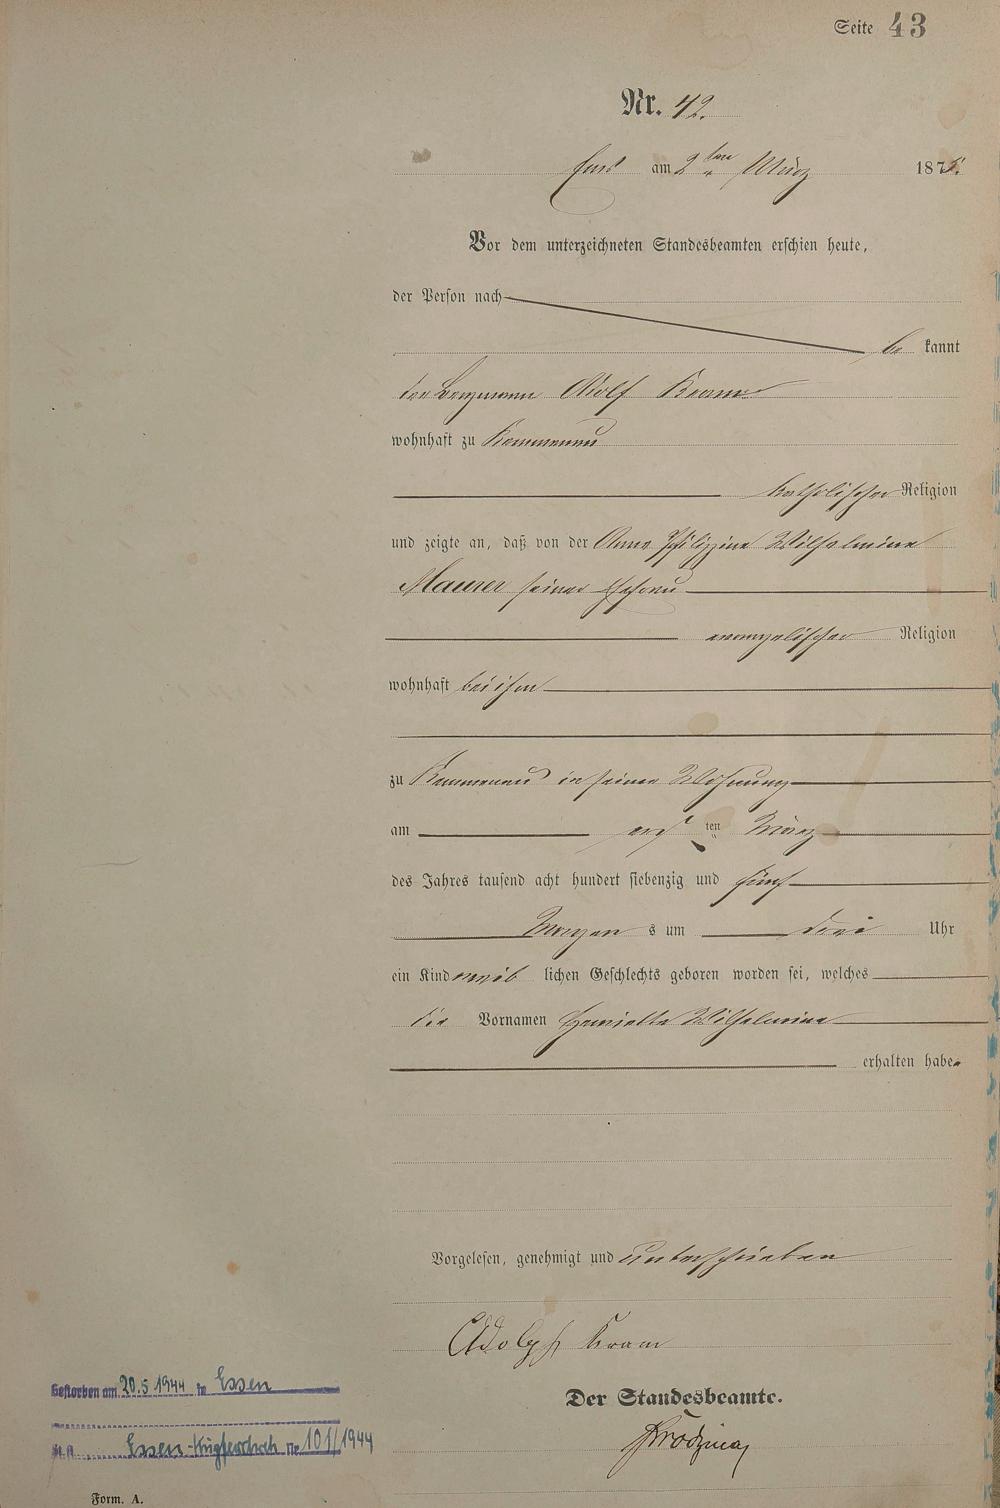 Seite 43
Nr. 42.
Ems am 2ten März 1875.
Vor dem unterzeichneten Standesbeamten erschien heute,
der Person nach
be kannt
der Bergmann Adolf Kram
wohnhaft zu Kemmenau
katholischer Religion
und zeigte an, daß von der Anna Philippina Wilhelmina
Maurer seiner Ehefrau
evangelischer Religion
wohnhaft bei ihm
zu Kemmenau in seiner Wohnung
am ersten März
des Jahres tausend acht hundert siebenzig und fünf
Morgens um drei Uhr
ein Kind weiblichen Geschlechts geboren worden sei, welches
die Vornamen Henriette Wilhelmina
erhalten habe.
Vorgelesen, genehmigt und unterschrieben
Adolph Kram
Der Standesbeamte.
Gestorben am 20.5.1944 in Essen
St.A. Essen- Nr. 101/1944
Form. A.